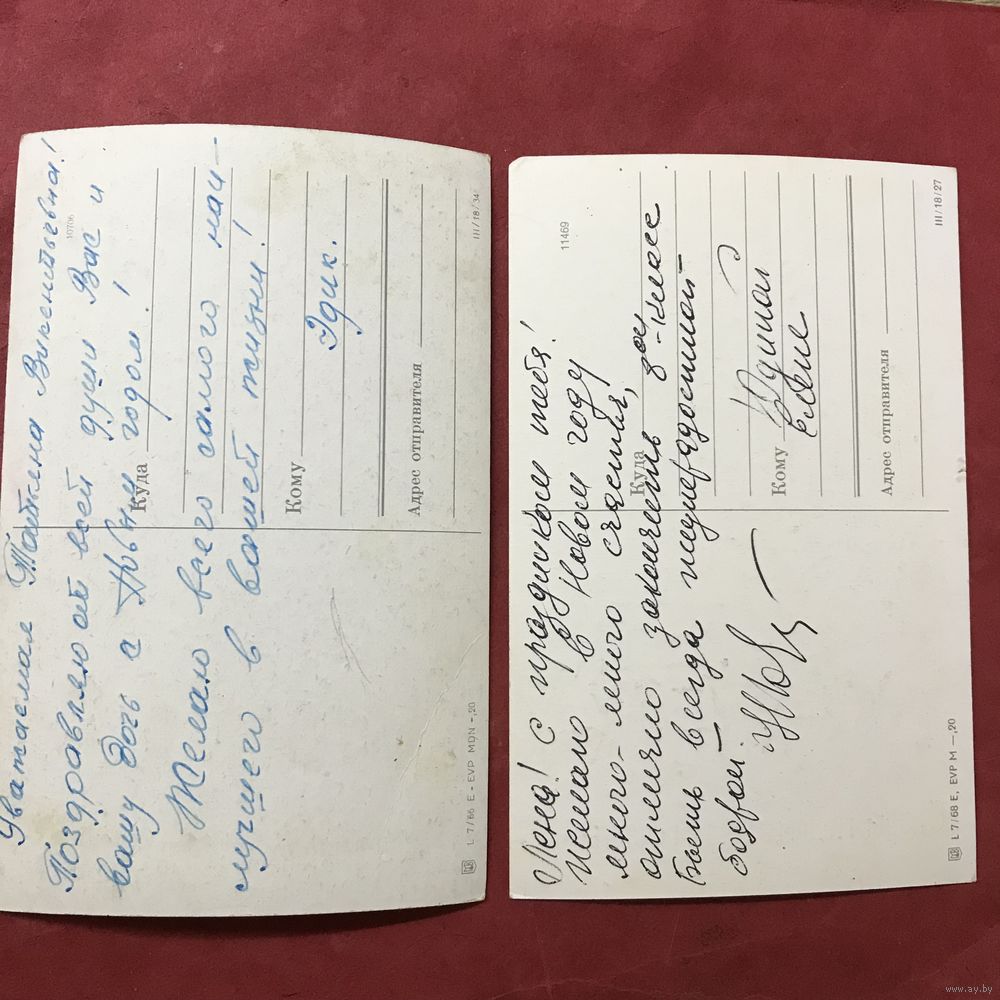 Уважаемая Татьяна Викентьевна!
Поздравляю от всей души Вас и
вашу дочь с Новым годом!
Желаю всего самого наи-
лучшего в вашей жизни!
Эдик.
10706
Куда
Кому
Адрес отправителя
III/18/34
L 7/66 E - EVP MDN -,20
Лена! С праздником тебя!
Желаю в Новом году
много-много счастья,
отлично закончить 3ой класс
Быть всегда жизнерадостной
бодрой.
11469
Куда
Кому
Адрес отправителя
III/18/27
L 7/68 E, EVP M —,20
www.ay.by